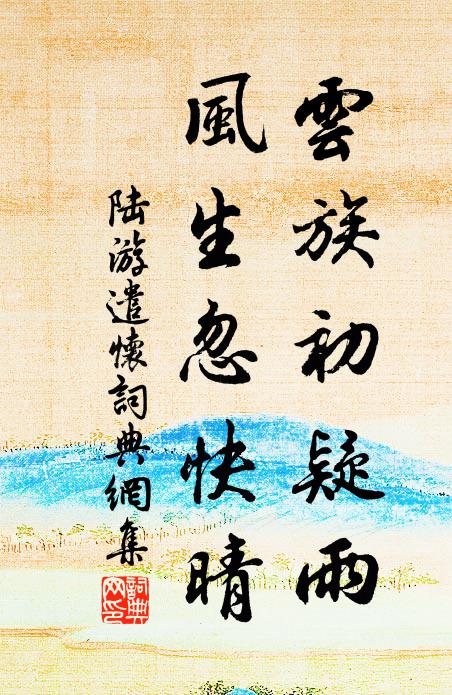 雲族初疑雨
風生忽快晴
陆游遣懷詞典網集
詞典
网印